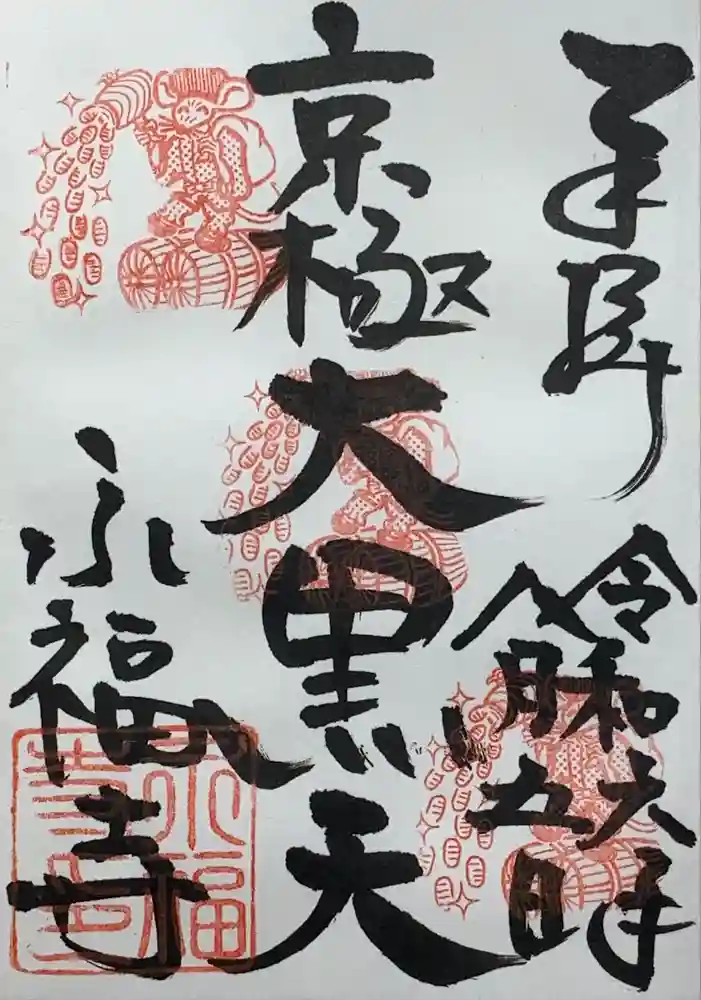 奉拝
令和六年
八月五日
京極
大黒天
永福寺
永福
寺